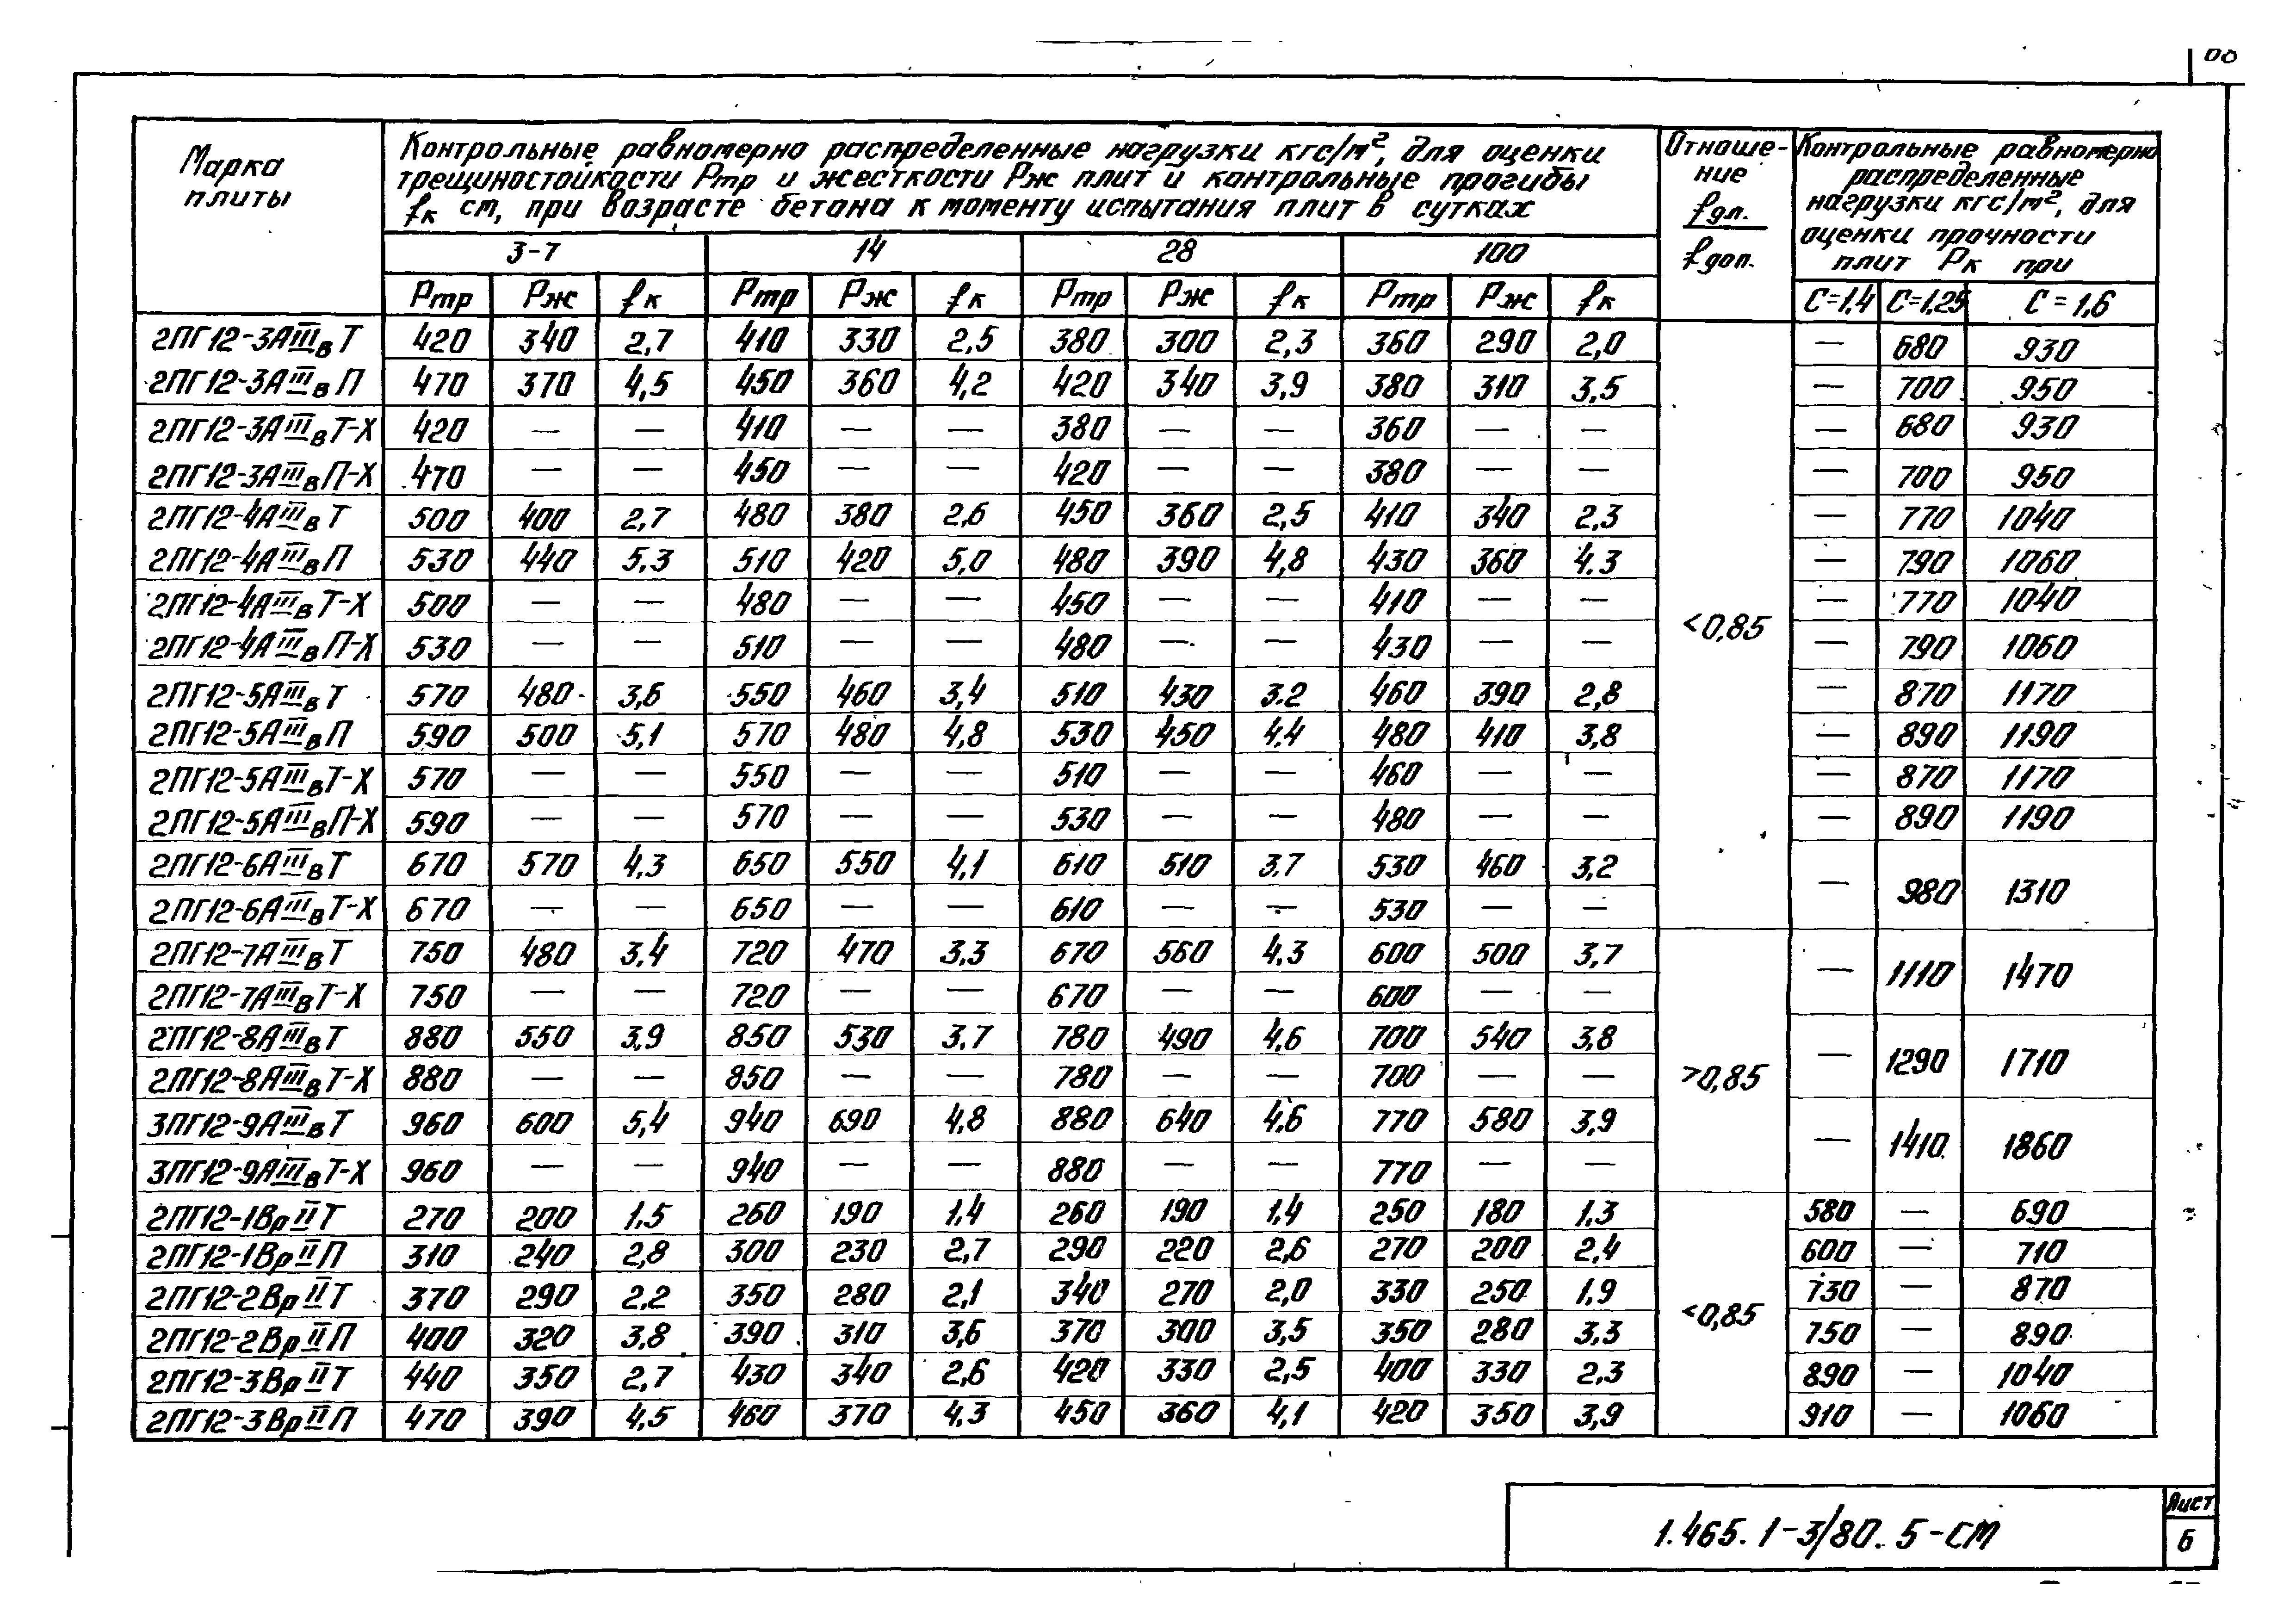 00
Марка
плиты
Контрольные равномерно распределенные нагрузки кгс/м², для оценки
трещиностойкости Ртр и жесткости Рж плит и контрольные прогибы
fк см, при возрасте бетона к моменту испытания плит в сутках
Отноше-
ние
fдл.
fдоп.
Контрольные равномерно
распределенные
нагрузки кгс/м², для
оценки прочности
плит Рк при
3-7 14 28 100
Ртр Рж fк Ртр Рж fк Ртр Рж fк Ртр Рж fк С=1,4 С=1,25 С=1,6
2ПГ12-3АIIIвТ 420 340 2,7 410 330 2,5 380 300 2,3 360 290 2,0 — 680 930
2ПГ12-3АIIIвП 470 370 4,5 450 360 4,2 420 340 3,9 380 310 3,5 — 700 950
2ПГ12-3АIIIвТ-Х 420 — — 410 — — 380 — — 360 — — — 680 930
2ПГ12-3АIIIвП-Х 470 — — 450 — — 420 — — 380 — — — 700 950
2ПГ12-4АIIIвТ 500 400 2,7 480 380 2,6 450 360 2,5 410 340 2,3 — 770 1040
2ПГ12-4АIIIвП 530 440 5,3 510 420 5,0 480 390 4,8 430 360 4.3 — 790 1060
2ПГ12-4АIIIвТ-Х 500 — — 480 — — 450 — — 410 — — — 770 1040
<0,85
2ПГ12-4АIIIвП-Х 530 — — 510 — — 480 — — 430 — — — 790 1060
2ПГ12-5АIIIвТ 570 480 3,6 550 460 3,4 510 430 3.2 460 390 2,8 — 870 1170
2ПГ12-5АIIIвП 590 500 5,1 570 480 4,8 530 450 4.4 480 410 3,8 — 890 1190
2ПГ12-5АIIIвТ-Х 570 — — 550 — — 510 — — 460 — — — 870 1170
2ПГ12-5АIIIвП-Х 590 — — 570 — — 530 — — 480 — — — 890 1190
2ПГ12-6АIIIвТ 670 570 4,3 650 550 4,1 610 510 3.7 530 460 3,2 — 980 1310
2ПГ12-6АIIIвТ-Х 670 — — 650 — — 610 — — 530 — —
2ПГ12-7АIIIвТ 750 480 3.4 720 470 3.3 670 560 4.3 600 500 3,7 — 1110 1470
2ПГ12-7АIIIвТ-Х 750 — — 720 — — 670 — — 600 — —
2ПГ12-8АIIIвТ 880 550 3,9 850 530 3.7 780 490 4.6 700 540 3,8 — 1290 1710
2ПГ12-8АIIIвТ-Х 880 — — 850 — — 780 — — 700 — — >0,85
3ПГ12-9АIIIвТ 960 600 5,4 940 690 4,8 880 640 4.6 770 580 3,9 — 1410 1860
3ПГ12-9АIIIвТ-Х 960 — — 940 — — 880 — — 770 — —
2ПГ12-1ВрIIТ 270 200 1.5 260 190 1.4 260 190 1,4 250 180 1.3 580 — 690
2ПГ12-1ВрIIП 310 240 2,8 300 230 2,7 290 220 2,6 270 200 2,4 600 — 710
2ПГ12-2ВрIIТ 370 290 2,2 350 280 2,1 340 270 2,0 330 250 1,9 730 — 870
<0,85
2ПГ12-2ВрIIП 400 320 3,8 390 310 3,6 370 300 3,5 350 280 3,3 750 — 890
2ПГ12-3ВрIIТ 440 350 2,7 430 340 2,6 420 330 2,5 400 330 2.3 890 — 1040
2ПГ12-3ВрIIП 470 390 4,5 460 370 4.3 450 360 4,1 420 350 3,9 910 — 1060
1.465.1-3/80.5-СМ
Лист
6